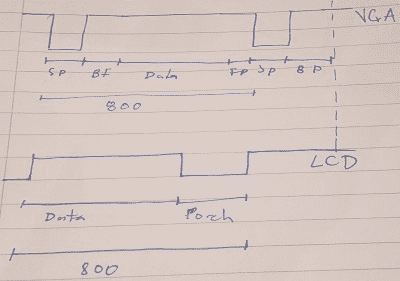 VGA
SP BF Data FP SP BP
800
LCD
Data Porch
800